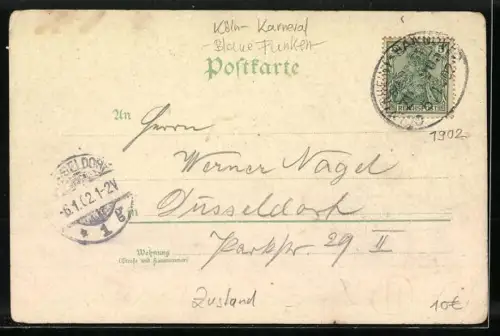 Köln Karneval
- Blaue Funken
Postkarte
1902
An
Herrn
Werner Nagel
in Düsseldorf
Parkstr. 29 II
Wohnung
(Straße und Hausnummer)
6.1.02.1-2V
* 1 g
Zustand
10€